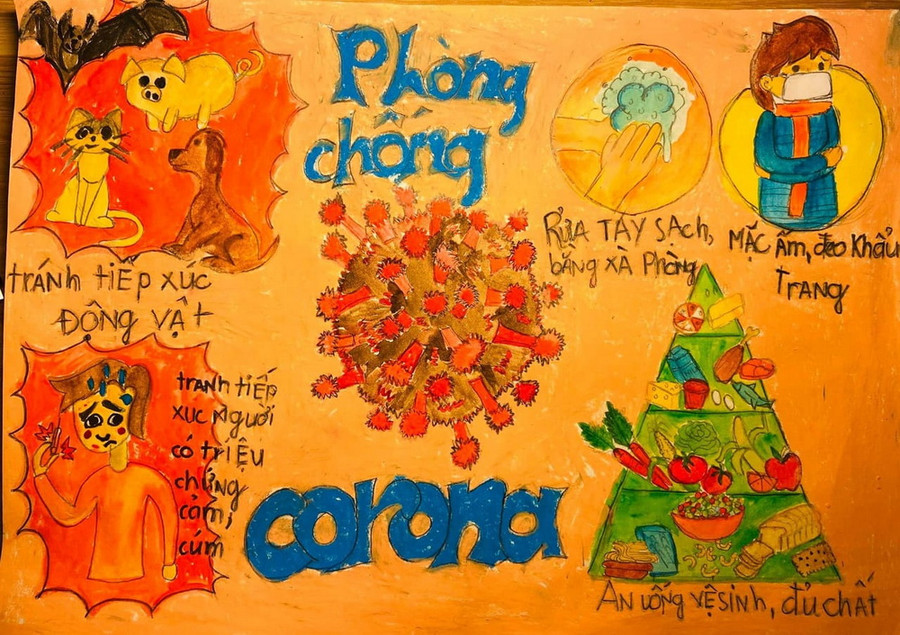 Phòng
chống
corona
tránh tiếp xúc
ĐỘNG VẬT
tránh tiếp
xúc người
có triệu
chứng
cảm,
cúm
RỬA TAY SẠCH,
bằng xà Phòng
MẶC ẤM, đeo Khẩu
TRANG
ĂN uống vệ sinh, đủ chất